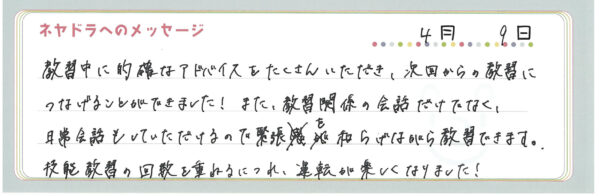 ネヤドラへのメッセージ
4月 9日
教習中に的確なアドバイスをたくさんいただき、次回からの教習に
つなげることができました！また、教習関係の会話だけでなく、
日常会話もしていただけるので緊張を和らげながら教習できます。
技能教習の回数を重ねるにつれ、運転が楽しくなりました！